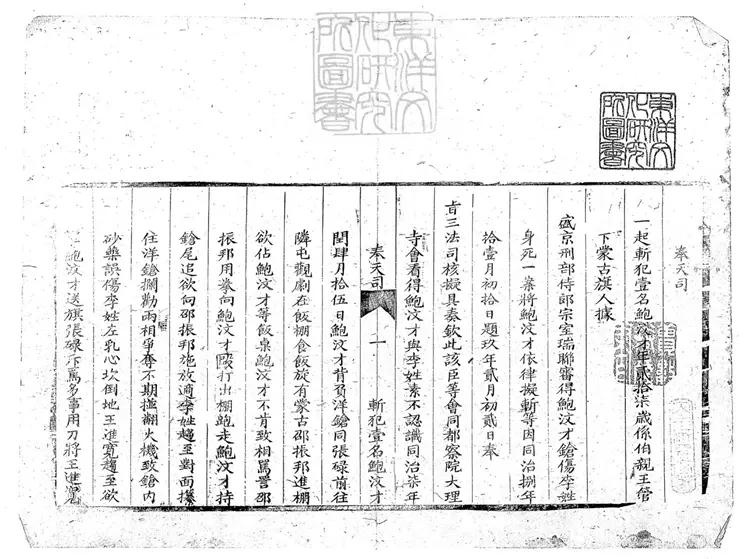 東洋文化研究所圖書
東洋文化研究所圖書
奉天司
一起斬犯壹名鮑汶才年貳拾柒歲係伯親王營
下蒙古旗人據
盛京刑部侍郎宗室瑞聯審得鮑汶才鎗傷李姓
身死一案將鮑汶才依律擬斬等因同治捌年
拾壹月初拾日題玖年貳月初貳日奉
旨三法司核擬具奏欽此該臣等會同都察院大理
寺會看得鮑汶才與李姓素不認識同治柒年
奉天司 一 斬犯壹名鮑汶才
閏肆月拾伍日鮑汶才背負洋鎗同張碌前往
隣屯觀劇在飯棚食飯旋有蒙古邵振邦進棚
欲佔鮑汶才等飯桌鮑汶才不肯致相罵詈邵
振邦用拳向鮑汶才毆打出棚跑走鮑汶才持
鎗尾追欲向邵振邦施放適李姓趨至對面攥
住洋鎗攔勸兩相爭奪不期搵翻火機致鎗內
砂藥誤傷李姓左乳心坎倒地王進寬趨至欲
鮑汶才送旗張碌斥罵多事用刀將王進寬